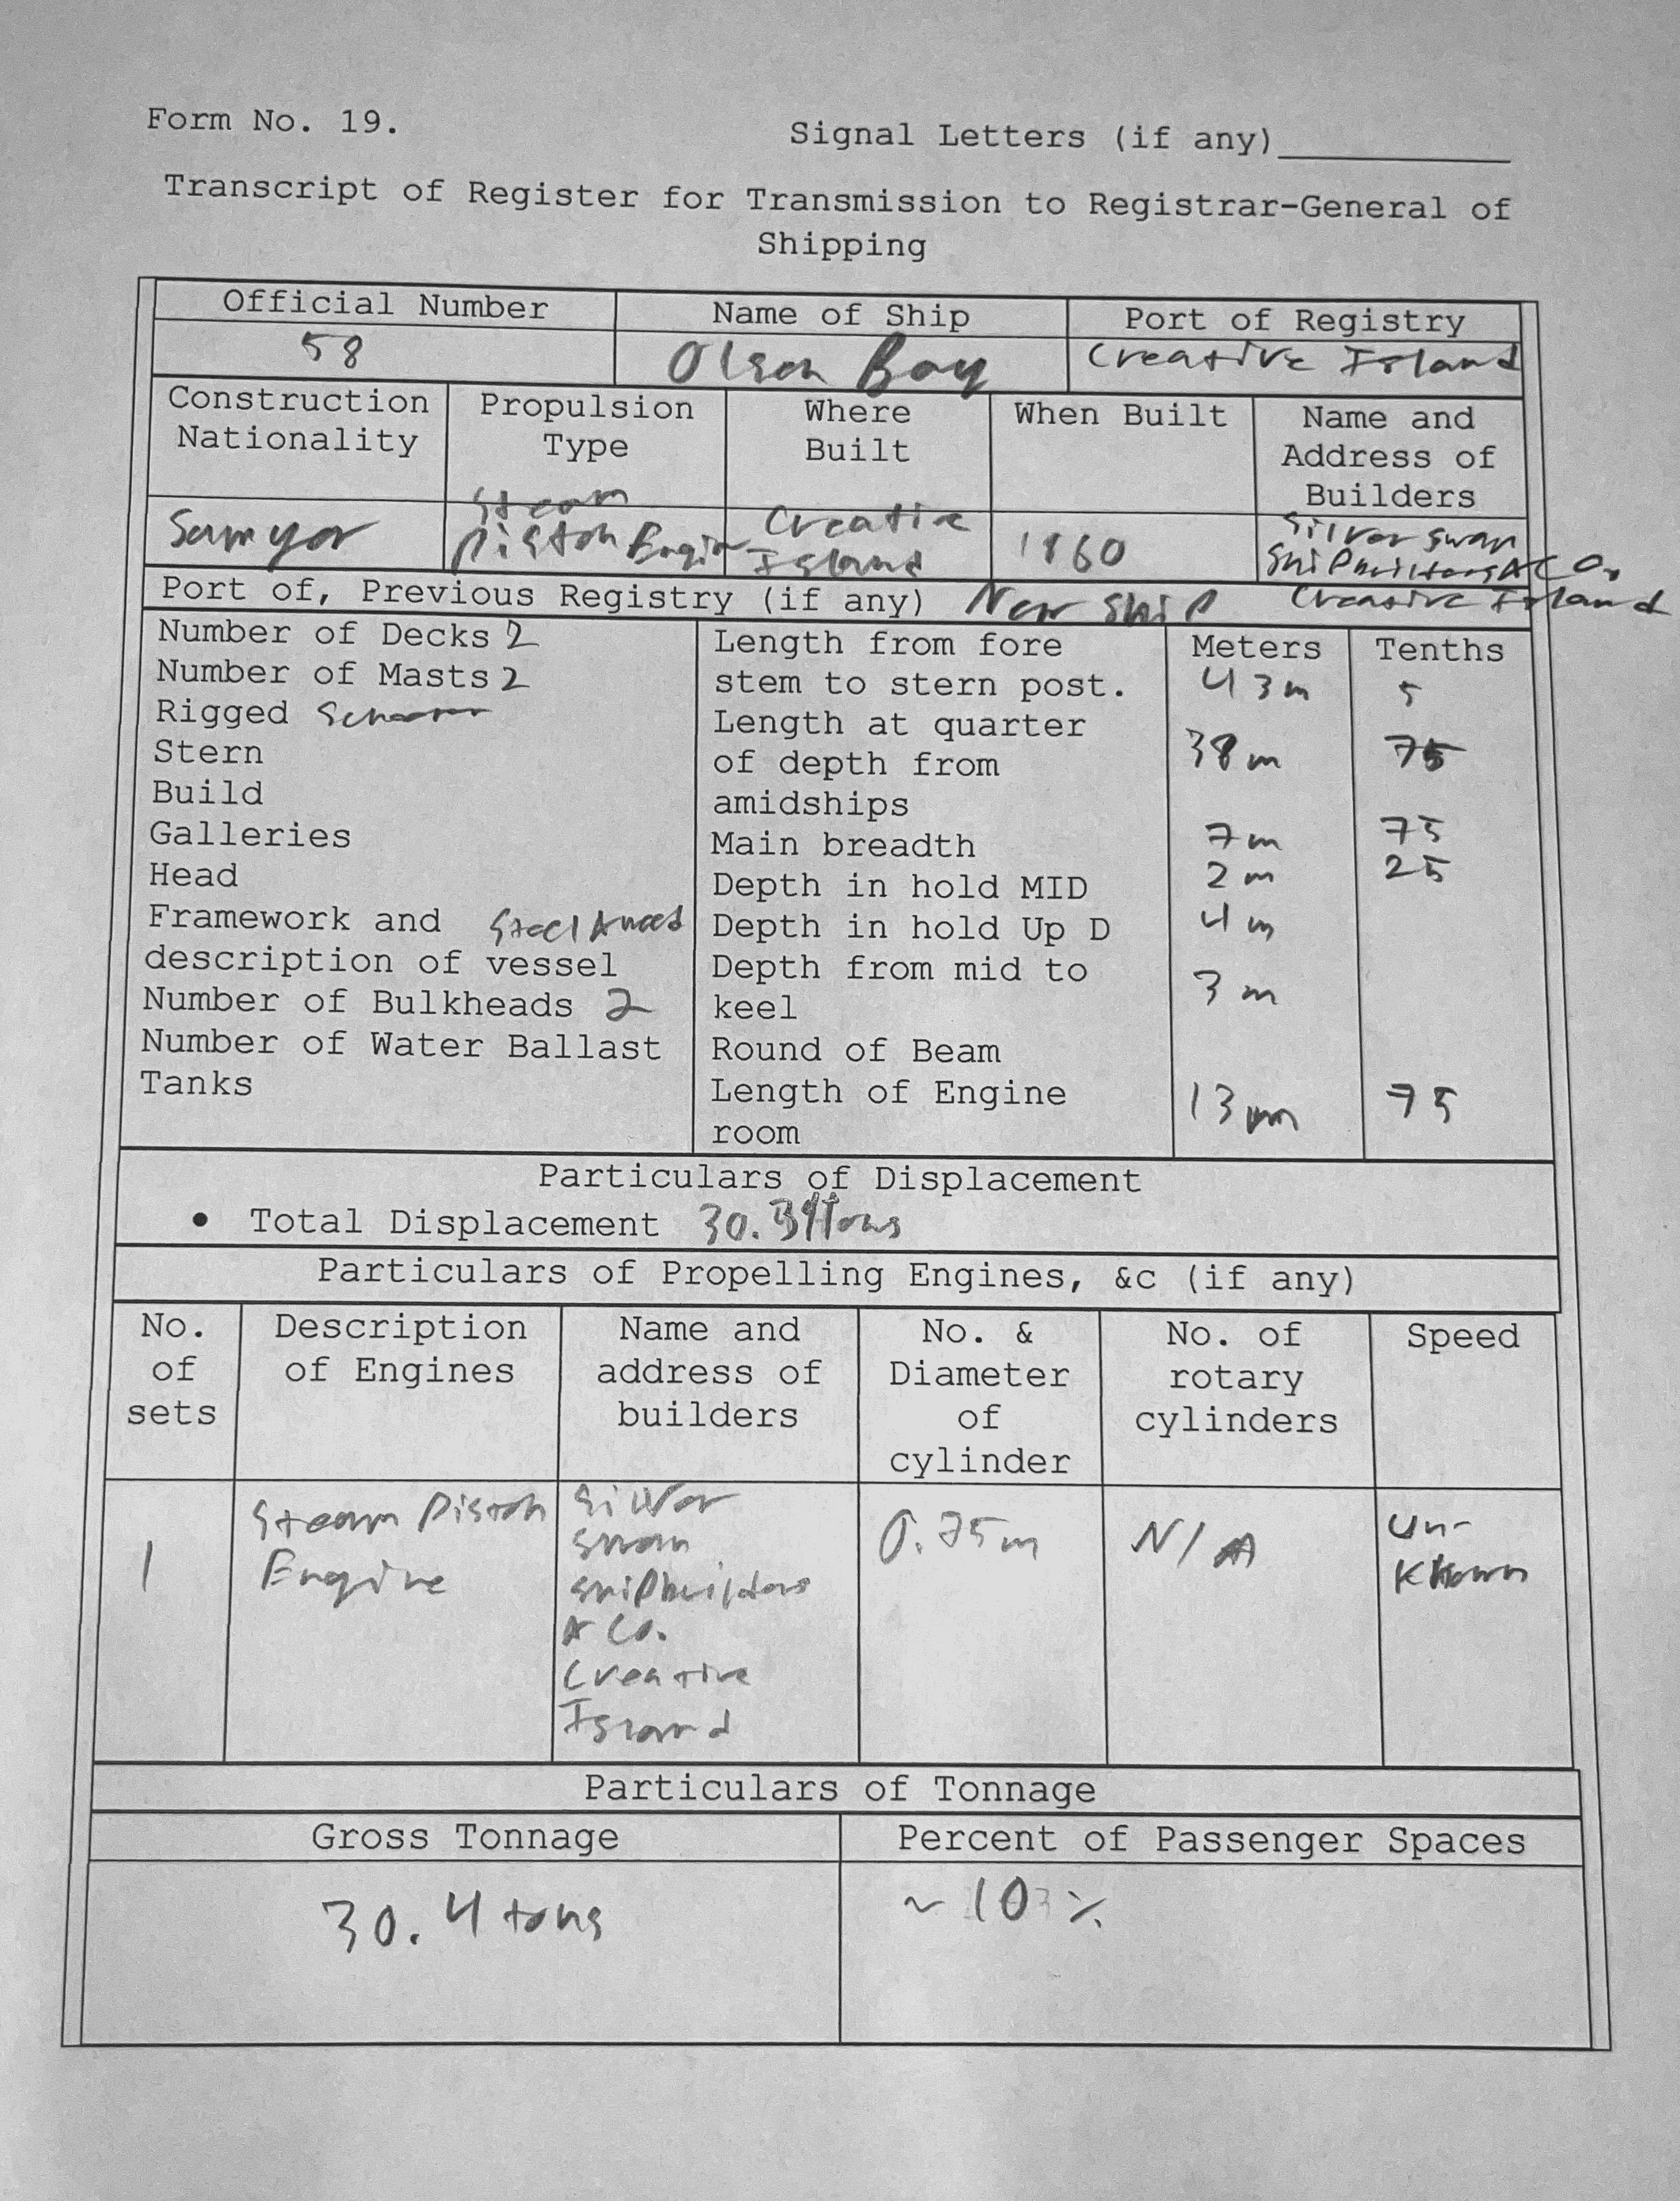 Form No. 19.
Signal Letters (if any)
Transcript of Register for Transmission to Registrar-General of
Shipping
Official Number
Name of Ship
Port of Registry
58
Olson Bay
Creative Island
Construction Nationality
Propulsion Type
Where Built
When Built
Name and Address of Builders
Samyor
Steam Piston Engin
Creative Island
1860
Silver Swan Shipbuilders & Co. Creative Island
Port of, Previous Registry (if any) New Ship
Number of Decks 2
Number of Masts 2
Rigged
Stern
Build
Galleries
Head
Framework and Steel & wood
description of vessel
Number of Bulkheads 2
Number of Water Ballast
Tanks
Meters Tenths
Length from fore
stem to stern post. 43m 5
Length at quarter
of depth from 38m 75
amidships
Main breadth 7m 75
Depth in hold MID 2m 25
Depth in hold Up D 4m
Depth from mid to
keel 3m
Round of Beam
Length of Engine 13m 75
room
Particulars of Displacement
• Total Displacement 30.39 tons
Particulars of Propelling Engines, &c (if any)
No. of sets
Description of Engines
Name and address of builders
No. & Diameter of cylinder
No. of rotary cylinders
Speed
1
Steam Piston
Engine
Silver
Swan
Shipbuilders
& Co.
Creative
Island
0.75m
N/A
Un-
Known
Particulars of Tonnage
Gross Tonnage
Percent of Passenger Spaces
30.4 tons
~ 10 %